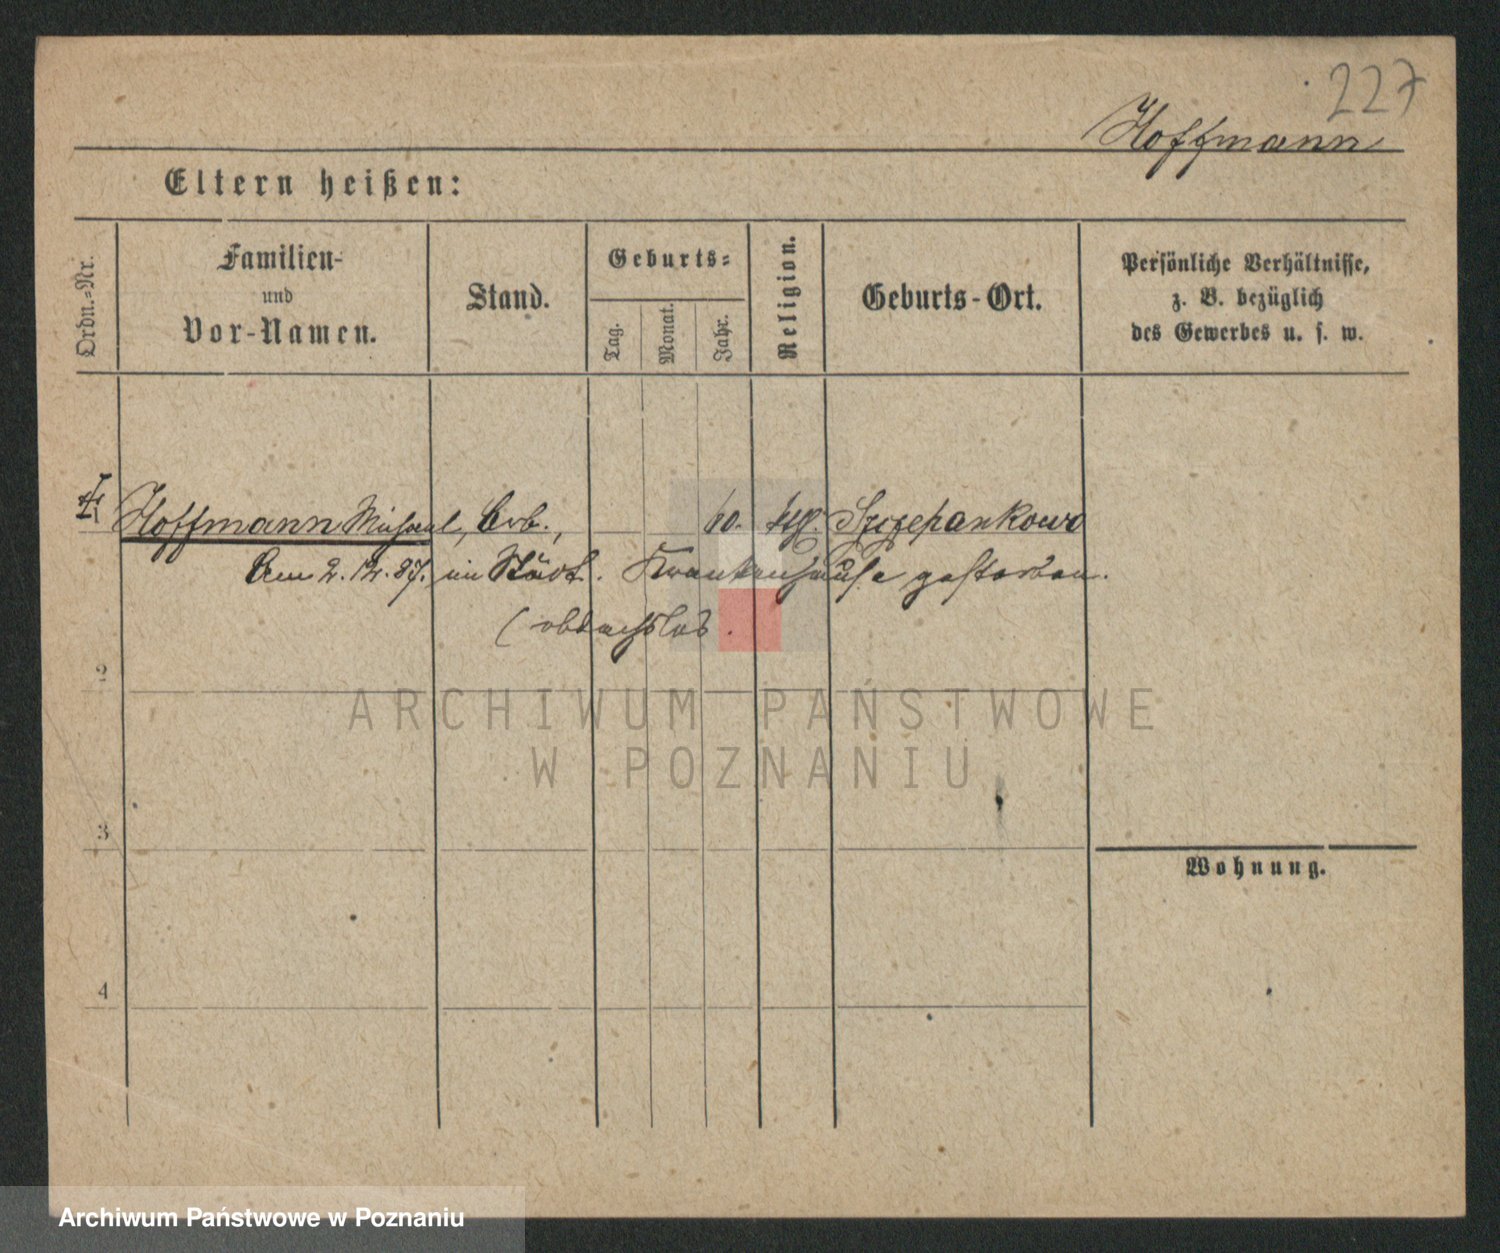 227
Hoffmann
Eltern heißen:
Ordn.-Nr.
Familien-
und
Vor-Namen.
Stand.
Geburts-
Tag.
Monat.
Jahr.
Religion.
Geburts-Ort.
Persönliche Verhältnisse,
z. B. bezüglich
des Gewerbes u. s. w.
Hoffmann Michael, Arb., 60. ktl. Szczepankowo
Am 2.12.87. im Städt. Krankenhause gestorben.
(obdachslos.
2
3
4
Wohnung.
ARCHIWUM PAŃSTWOWE
W POZNANIU
Archiwum Państwowe w Poznaniu